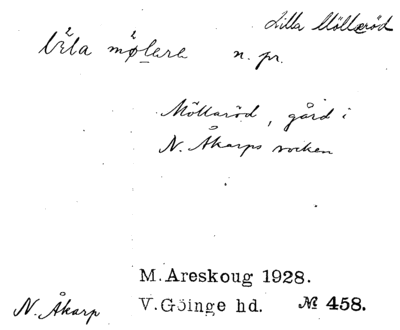 Lilla Möllaröd
lila mølara n. pr.
Möllaröd, gård i
N. Åkarps socken
M. Areskoug 1928.
N. Åkarp V. Göinge hd. № 458.